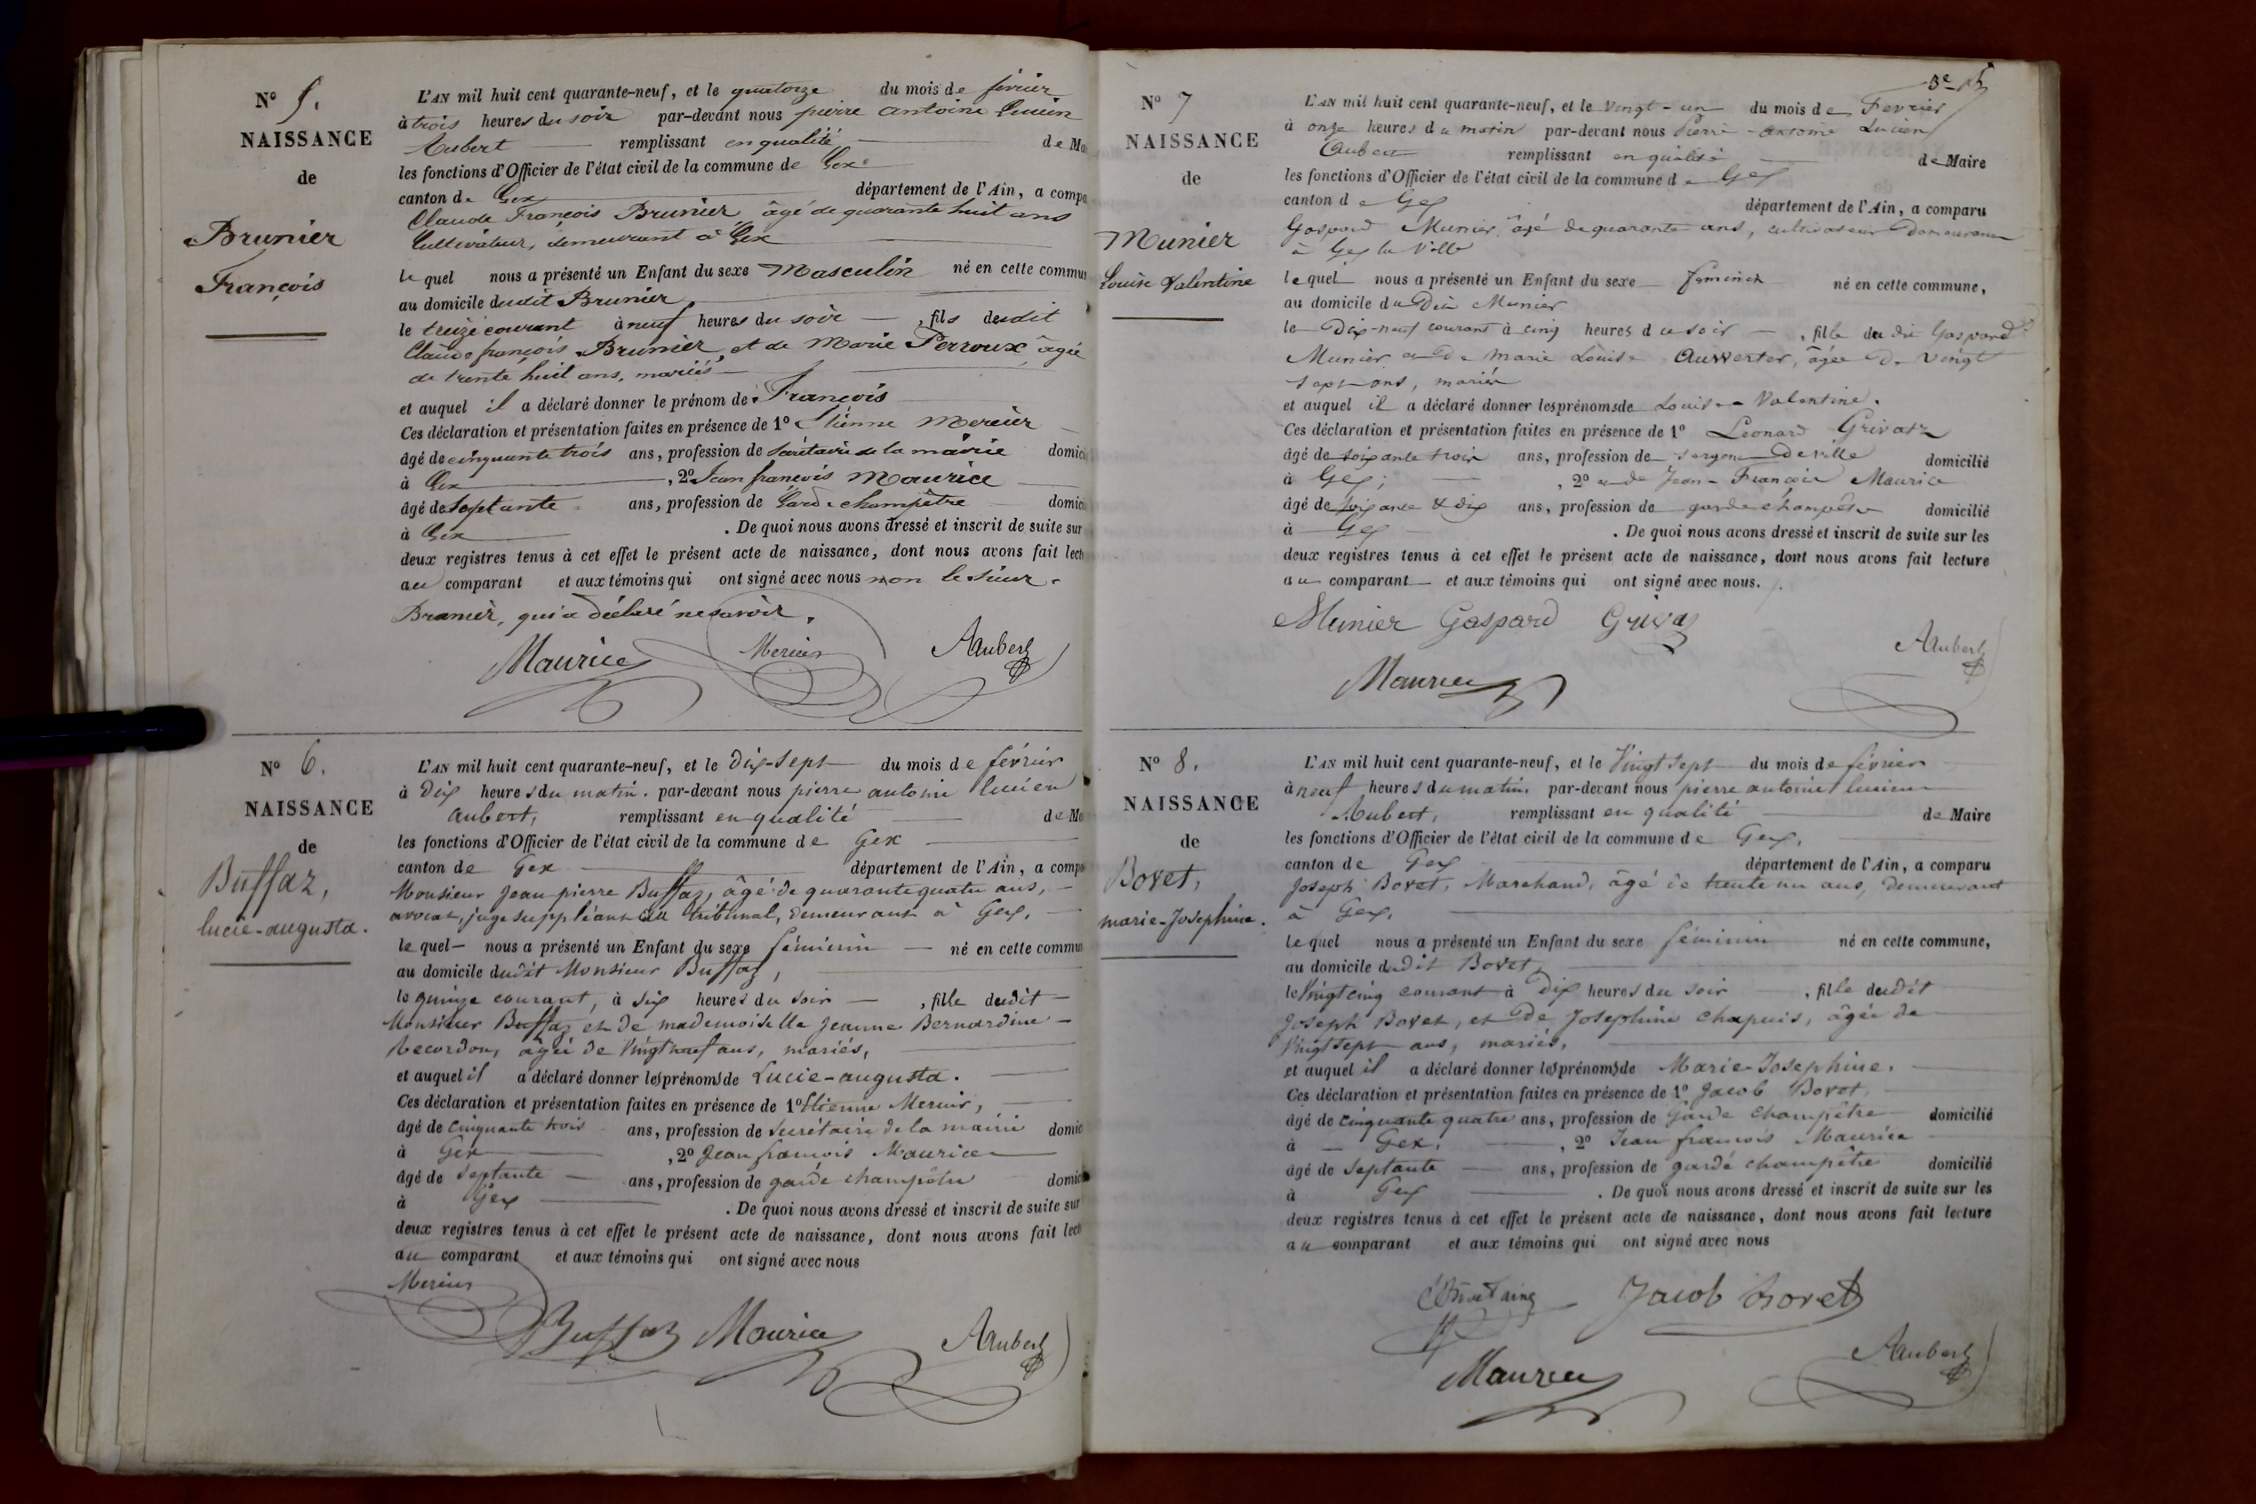 N° 5.
NAISSANCE
de
Brunier
François
L'AN mil huit cent quarante-neuf, et le quatorze du mois de février
à trois heures du soir par-devant nous pierre antoine Lucien
Aubert remplissant en qualité de Ma
les fonctions d'Officier de l'état civil de la commune de Gex
canton de Gex département de l'Ain, a compa
Claude François Brunier âgé de quarante huit ans
Cultivateur, demeurant à Gex
lequel nous a présenté un Enfant du sexe Masculin né en cette commun
au domicile dudit Brunier
le treize courant à neuf heures du soir, fils dudit
Claude françois Brunier, et de Marie Perroux âgée
de trente huit ans, mariés
et auquel il a déclaré donner le prénom de François
Ces déclaration et présentation faites en présence de 1° Etiénne Mercier
âgé de cinquante trois ans, profession de Secrétaire de la mairie domici
à Gex, 2° Jean françois Maurice
âgé de septante ans, profession de Garde champêtre domici
à Gex. De quoi nous avons dressé et inscrit de suite sur
deux registres tenus à cet effet le présent acte de naissance, dont nous avons fait lectu
au comparant et aux témoins qui ont signé avec nous non le sieur
Brunier, qui a déclaré ne savoir.
Maurice Mercier AAubert
N° 6.
NAISSANCE
de
Buffaz,
lucie-augusta.
L'AN mil huit cent quarante-neuf, et le dix-sept du mois de février
à Dix heures du matin. par-devant nous pierre antoine lucien
aubert, remplissant en qualité de Ma
les fonctions d'Officier de l'état civil de la commune de Gex
canton de Gex département de l'Ain, a compa
Monsieur Jean pierre Buffaz, âgé de quarante quatre ans,
avocat, juge suppléant au tribunal, demeurant à Gex,
lequel nous a présenté un Enfant du sexe féminin né en cette commun
au domicile dudit Monsieur Buffaz,
le quinze courant, à six heures du soir, fille dudit
Monsieur Buffaz et de mademoiselle Jeanne Bernardine
Recordon, âgée de Vingt neuf ans, mariés,
et auquel il a déclaré donner les prénoms de Lucie-augusta.
Ces déclaration et présentation faites en présence de 1° Etienne Mercier,
âgé de cinquante trois ans, profession de Secrétaire de la mairie domic
à Gex, 2° Jean francois Maurice
âgé de septante ans, profession de garde champêtre domic
à Gex. De quoi nous avons dressé et inscrit de suite sur
deux registres tenus à cet effet le présent acte de naissance, dont nous avons fait lect
au comparant et aux témoins qui ont signé avec nous
Mercier
Buffaz Maurice AAubert
3e 5
N° 7
NAISSANCE
de
Munier
Louise Valentine
L'AN mil huit cent quarante-neuf, et le vingt-un du mois de Fevrier
à onze heures du matin par-devant nous Pierre-antoine Lucien
Aubert remplissant en qualité de Maire
les fonctions d'Officier de l'état civil de la commune de Gex
canton de Gex département de l'Ain, a comparu
Gaspard Munier, âgé de quarante ans, cultivateur Demeurant
à Gex la Ville
lequel nous a présenté un Enfant du sexe feminin né en cette commune,
au domicile du Dit Munier
le Dix-neuf courant à cinq heures du soir, fille du dit Gaspard
Munier et de Marie Louise Auwerter, âgée De vingt
sept ans, mariés
et auquel il a déclaré donner les prénoms de Louise Valentine.
Ces déclaration et présentation faites en présence de 1° Léonard Grivaz
âgé de soixante trois ans, profession de sergent De ville domicilié
à Gex; , 2° et de Jean-François Maurice
âgé de soixante & dix ans, profession de garde champêtre domicilié
à Gex. De quoi nous avons dressé et inscrit de suite sur les
deux registres tenus à cet effet le présent acte de naissance, dont nous avons fait lecture
au comparant et aux témoins qui ont signé avec nous.
Munier Gaspard Grivaz
AAubert
Maurice
N° 8.
NAISSANCE
de
Bovet,
marie-Josephine.
L'AN mil huit cent quarante-neuf, et le Vingt sept du mois de février
à neuf heures du matin, par-devant nous pierre antoine lucien
Aubert, remplissant en qualité de Maire
les fonctions d'Officier de l'état civil de la commune de Gex,
canton de Gex département de l'Ain, a comparu
Joseph Bovet, Marchand, âgé de trente un ans, demeurant
à Gex,
lequel nous a présenté un Enfant du sexe féminin né en cette commune,
au domicile dudit Bovet,
le Vingt cinq courant à Dix heures du soir, fille dudit
Joseph Bovet, et De Josephine chapuis, âgée de
Vingt sept ans, mariés,
et auquel il a déclaré donner les prénoms de Marie-Josephine.
Ces déclaration et présentation faites en présence de 1° Jacob Bovet,
âgé de cinquante quatre ans, profession de Garde champêtre domicilié
à Gex, , 2° Jean francois Maurice
âgé de septante ans, profession de garde champêtre domicilié
à Gex. De quoi nous avons dressé et inscrit de suite sur les
deux registres tenus à cet effet le présent acte de naissance, dont nous avons fait lecture
au comparant et aux témoins qui ont signé avec nous
Jacob bovet
AAubert
Maurice